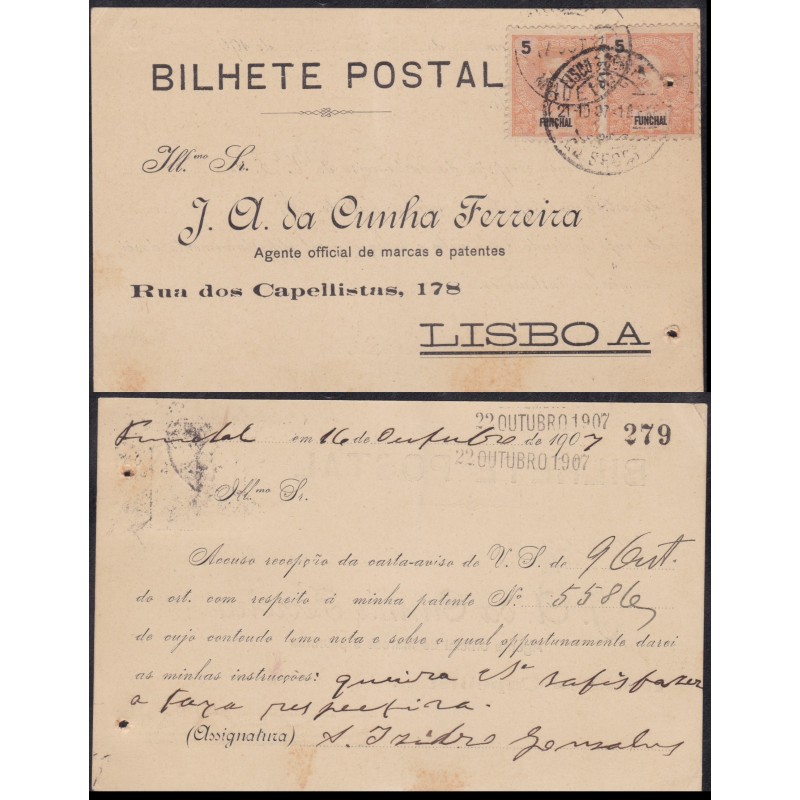 5 5
FUNCHAL FUNCHAL
BILHETE POSTAL
Ill.mo Sr.
J. A. da Cunha Ferreira
Agente official de marcas e patentes
Rua dos Capellistas, 178
LISBOA
22 OUTUBRO 1907
Funchal em 16 de Outubro de 1907 279
22 OUTUBRO 1907
Ill.mo Sr.
Accuso recepção da carta-aviso de V. S. de 9 Out.
do crt. com respeito á minha patente No. 5586,
de cujo conteudo tomo nota e sobre o qual opportunamente darei
as minhas instrucções: queira satisfazer
a taxa respectiva.
(Assignatura) S. Izidro Gonsalves